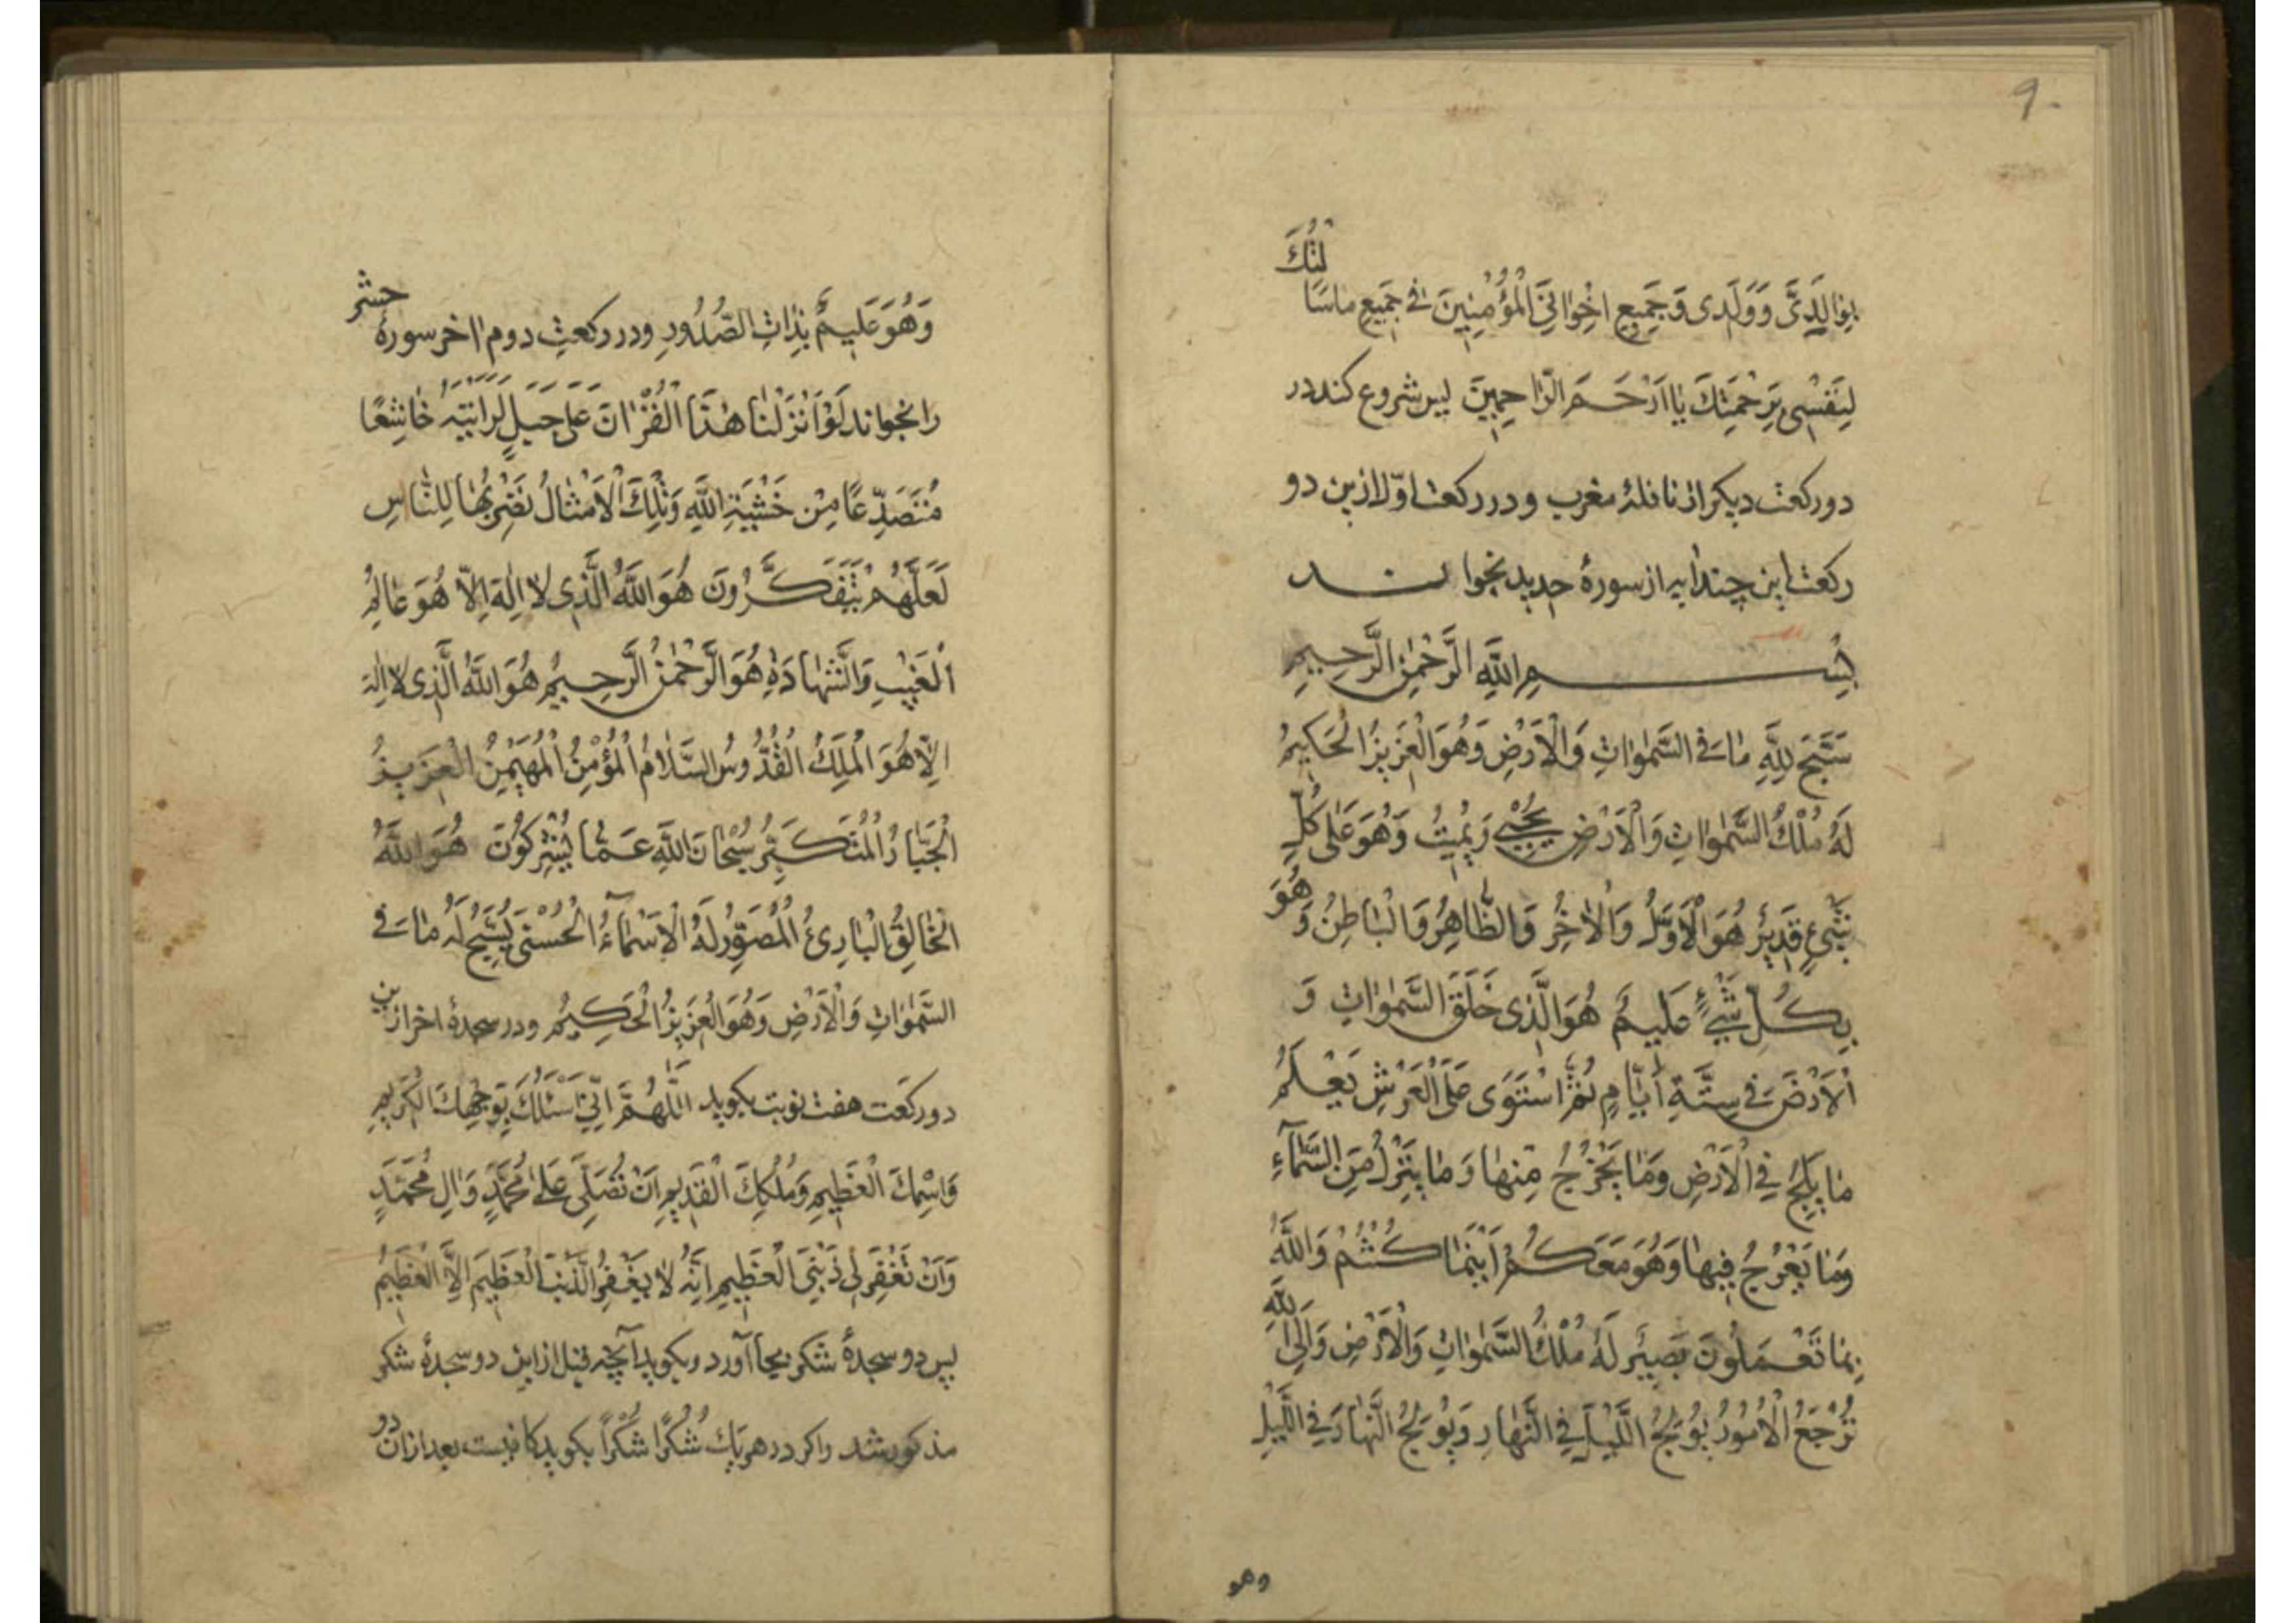 ۹۰
لتُكَ
بِوٰالِدَىَّ وَوَلَدِى وَجَمِيعِ اِخْوٰانِىَ الْمُؤْمِنِينَ فِى جَمِيعِ مٰاسَاَ
لِنَفْسِى بِرَحْمَتِكَ يٰا اَرْحَمَ الرّٰاحِمِينَ پس شروع كند در
دو ركعت ديكر از نافلهٔ مغرب و در ركعت اوّل ازين دو
ركعت اين چند آيه از سورهٔ حديد بخواند
بِسْمِ اللَّهِ الرَّحْمٰنِ الرَّحِيمِ
سَبَّحَ لِلَّهِ مٰا فِى السَّمٰوٰاتِ وَالْاَرْضِ وَهُوَ الْعَزِيزُ الْحَكِيمُ
لَهُ مُلْكُ السَّمٰوٰاتِ وَالْاَرْضِ يُحْيِى وَيُمِيتُ وَهُوَ عَلٰى كُلِّ
شَىْءٍ قَدِيرٌ هُوَ الْاَوَّلُ وَالْاٰخِرُ وَالظّٰاهِرُ وَالْبٰاطِنُ وَ هُوَ
بِكُلِّ شَىْءٍ عَلِيمٌ هُوَ الَّذِى خَلَقَ السَّمٰوٰاتِ وَ
الْاَرْضَ فِى سِتَّةِ اَيّٰامٍ ثُمَّ اسْتَوٰى عَلَى الْعَرْشِ يَعْلَمُ
مٰا يَلِجُ فِى الْاَرْضِ وَمٰا يَخْرُجُ مِنْهٰا وَمٰا يَنْزِلُ مِنَ السَّمٰآءِ
وَمٰا يَعْرُجُ فِيهٰا وَهُوَ مَعَكُمْ اَيْنَمٰا كُنْتُمْ وَاللَّهُ
بِمٰا تَعْمَلُونَ بَصِيرٌ لَهُ مُلْكُ السَّمٰوٰاتِ وَالْاَرْضِ وَاِلَى اللَّهِ
تُرْجَعُ الْاُمُورُ يُولِجُ اللَّيْلَ فِى النَّهٰارِ وَيُولِجُ النَّهٰارَ فِى اللَّيْلِ
وهو
وَهُوَ عَلِيمٌ بِذٰاتِ الصُّدُورِ و در ركعتِ دوم اٰخر سورهٔ حشر
را بخواند لَوْ اَنْزَلْنٰا هٰذَا الْقُرْاٰنَ عَلٰى جَبَلٍ لَرَاَيْتَهُ خٰاشِعًا
مُتَصَدِّعًا مِنْ خَشْيَةِ اللَّهِ وَتِلْكَ الْاَمْثٰالُ نَضْرِبُهٰا لِلنّٰاسِ
لَعَلَّهُمْ يَتَفَكَّرُونَ هُوَ اللَّهُ الَّذِى لٰا اِلٰهَ اِلّٰا هُوَ عٰالِمُ
الْغَيْبِ وَالشَّهٰادَةِ هُوَ الرَّحْمٰنُ الرَّحِيمُ هُوَ اللَّهُ الَّذِى لٰا اِلٰهَ
اِلّٰا هُوَ الْمَلِكُ الْقُدُّوسُ السَّلٰامُ الْمُؤْمِنُ الْمُهَيْمِنُ الْعَزِيزُ
الْجَبّٰارُ الْمُتَكَبِّرُ سُبْحٰانَ اللَّهِ عَمّٰا يُشْرِكُونَ هُوَ اللَّهُ
الْخٰالِقُ الْبٰارِئُ الْمُصَوِّرُ لَهُ الْاَسْمٰآءُ الْحُسْنٰى يُسَبِّحُ لَهُ مٰا فِى
السَّمٰوٰاتِ وَالْاَرْضِ وَهُوَ الْعَزِيزُ الْحَكِيمُ و در سجدهٔ اخر ازين
دو ركعت هفت نوبت بكويد اَللّٰهُمَّ اِنِّى اَسْئَلُكَ بِوَجْهِكَ الْكَرِيمِ
وَاسْمِكَ الْعَظِيمِ وَمُلْكِكَ الْقَدِيمِ اَنْ تُصَلِّىَ عَلٰى مُحَمَّدٍ وَاٰلِ مُحَمَّدٍ
وَاَنْ تَغْفِرَ لِى ذَنْبِىَ الْعَظِيمَ اِنَّهُ لٰا يَغْفِرُ الذَّنْبَ الْعَظِيمَ اِلَّا الْعَظِيمُ
پس دو سجدهٔ شكر بجا آورد و بكويد آنچه قبل ازاين دو سجدهٔ شكر
مذكور شد و اكر در هريك شُكْرًا شُكْرًا بكويد كافيست بعد ازان دو